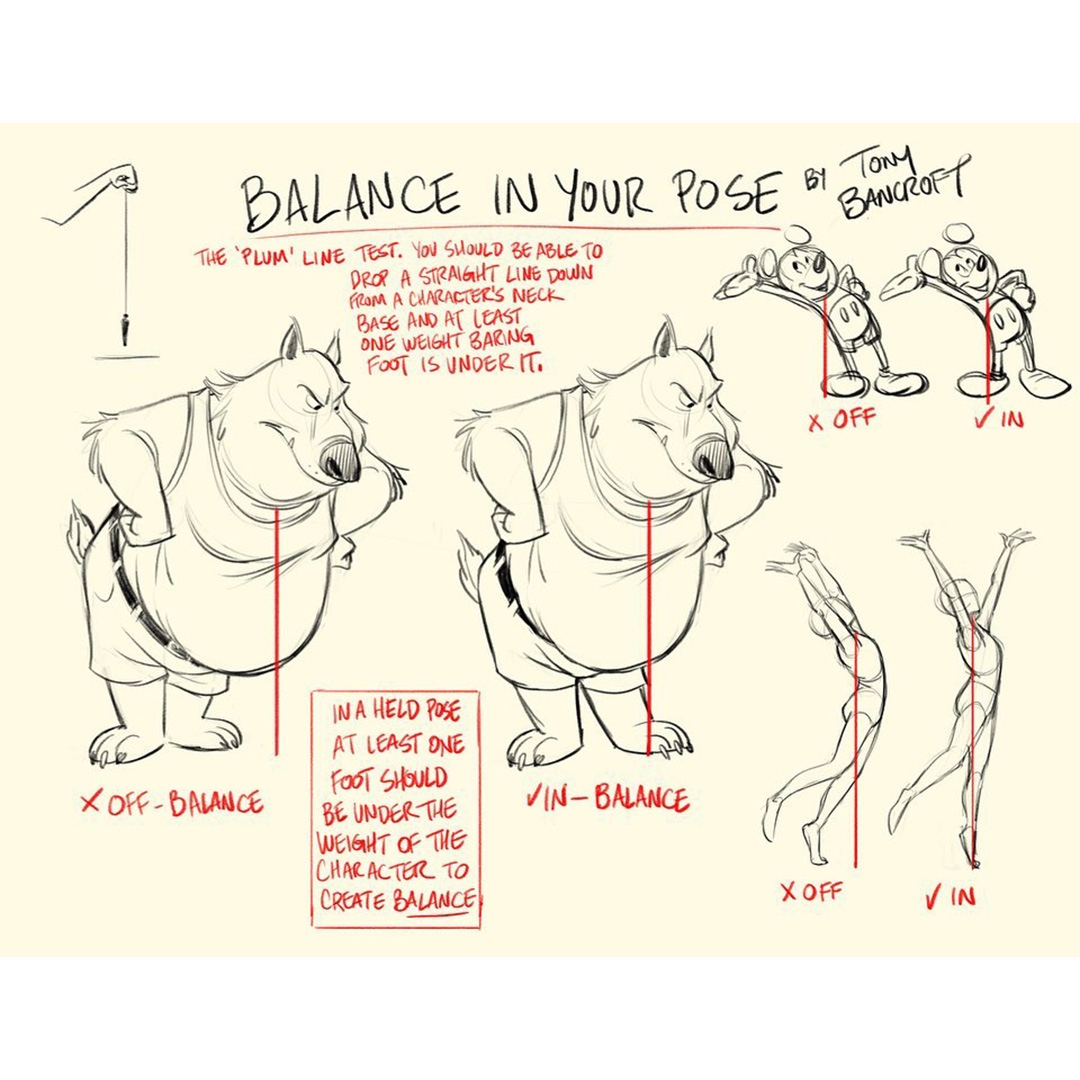 BALANCE IN YOUR POSE BY TONY
BANCROFT
THE 'PLUM' LINE TEST. YOU SHOULD BE ABLE TO
DROP A STRAIGHT LINE DOWN
FROM A CHARACTER'S NECK
BASE AND AT LEAST
ONE WEIGHT BARING
FOOT IS UNDER IT.
X OFF
✓ IN
X OFF-BALANCE
IN A HELD POSE
AT LEAST ONE
FOOT SHOULD
BE UNDER THE
WEIGHT OF THE
CHARACTER TO
CREATE BALANCE
✓ IN-BALANCE
X OFF
✓ IN